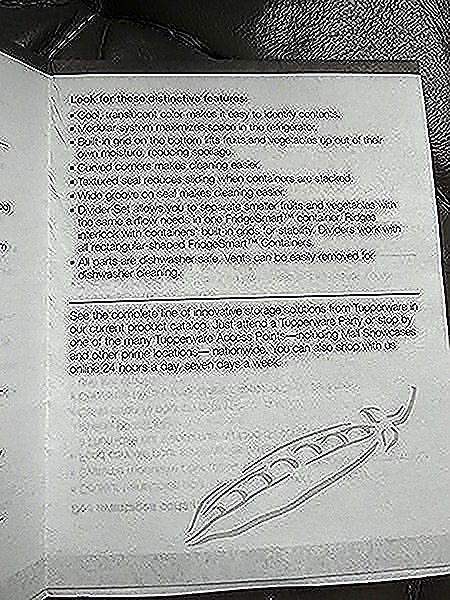 Look for these distinctive features:
• Cool, translucent color makes it easy to identify contents.
• Modular system maximizes space in the refrigerator.
• Built-in grid on the bottom lifts fruits and vegetables up out of their
own moisture, reducing spoilage.
• Curved corners makes cleaning easier.
• Textured seal reduces sliding when containers are stacked.
• Wide groove on seal makes cleaning easier.
• Divider Set allows to separate smaller fruits and vegetables with
the same airflow needs in one FridgeSmart™ container. Ridges
interlock with containers' built-in grids for stability. Dividers work with
all rectangular-shaped FridgeSmart™ Containers.
• All parts are dishwasher safe. Vents can be easily removed for
dishwasher cleaning.
See the complete line of innovative storage solutions from Tupperware in
our current product catalog. Just attend a Tupperware Party or stop by
one of the many Tupperware Access Points—including Mall Showcases
and other prime locations— nationwide. You can also shop with us
online 24 hours a day, seven days a week.